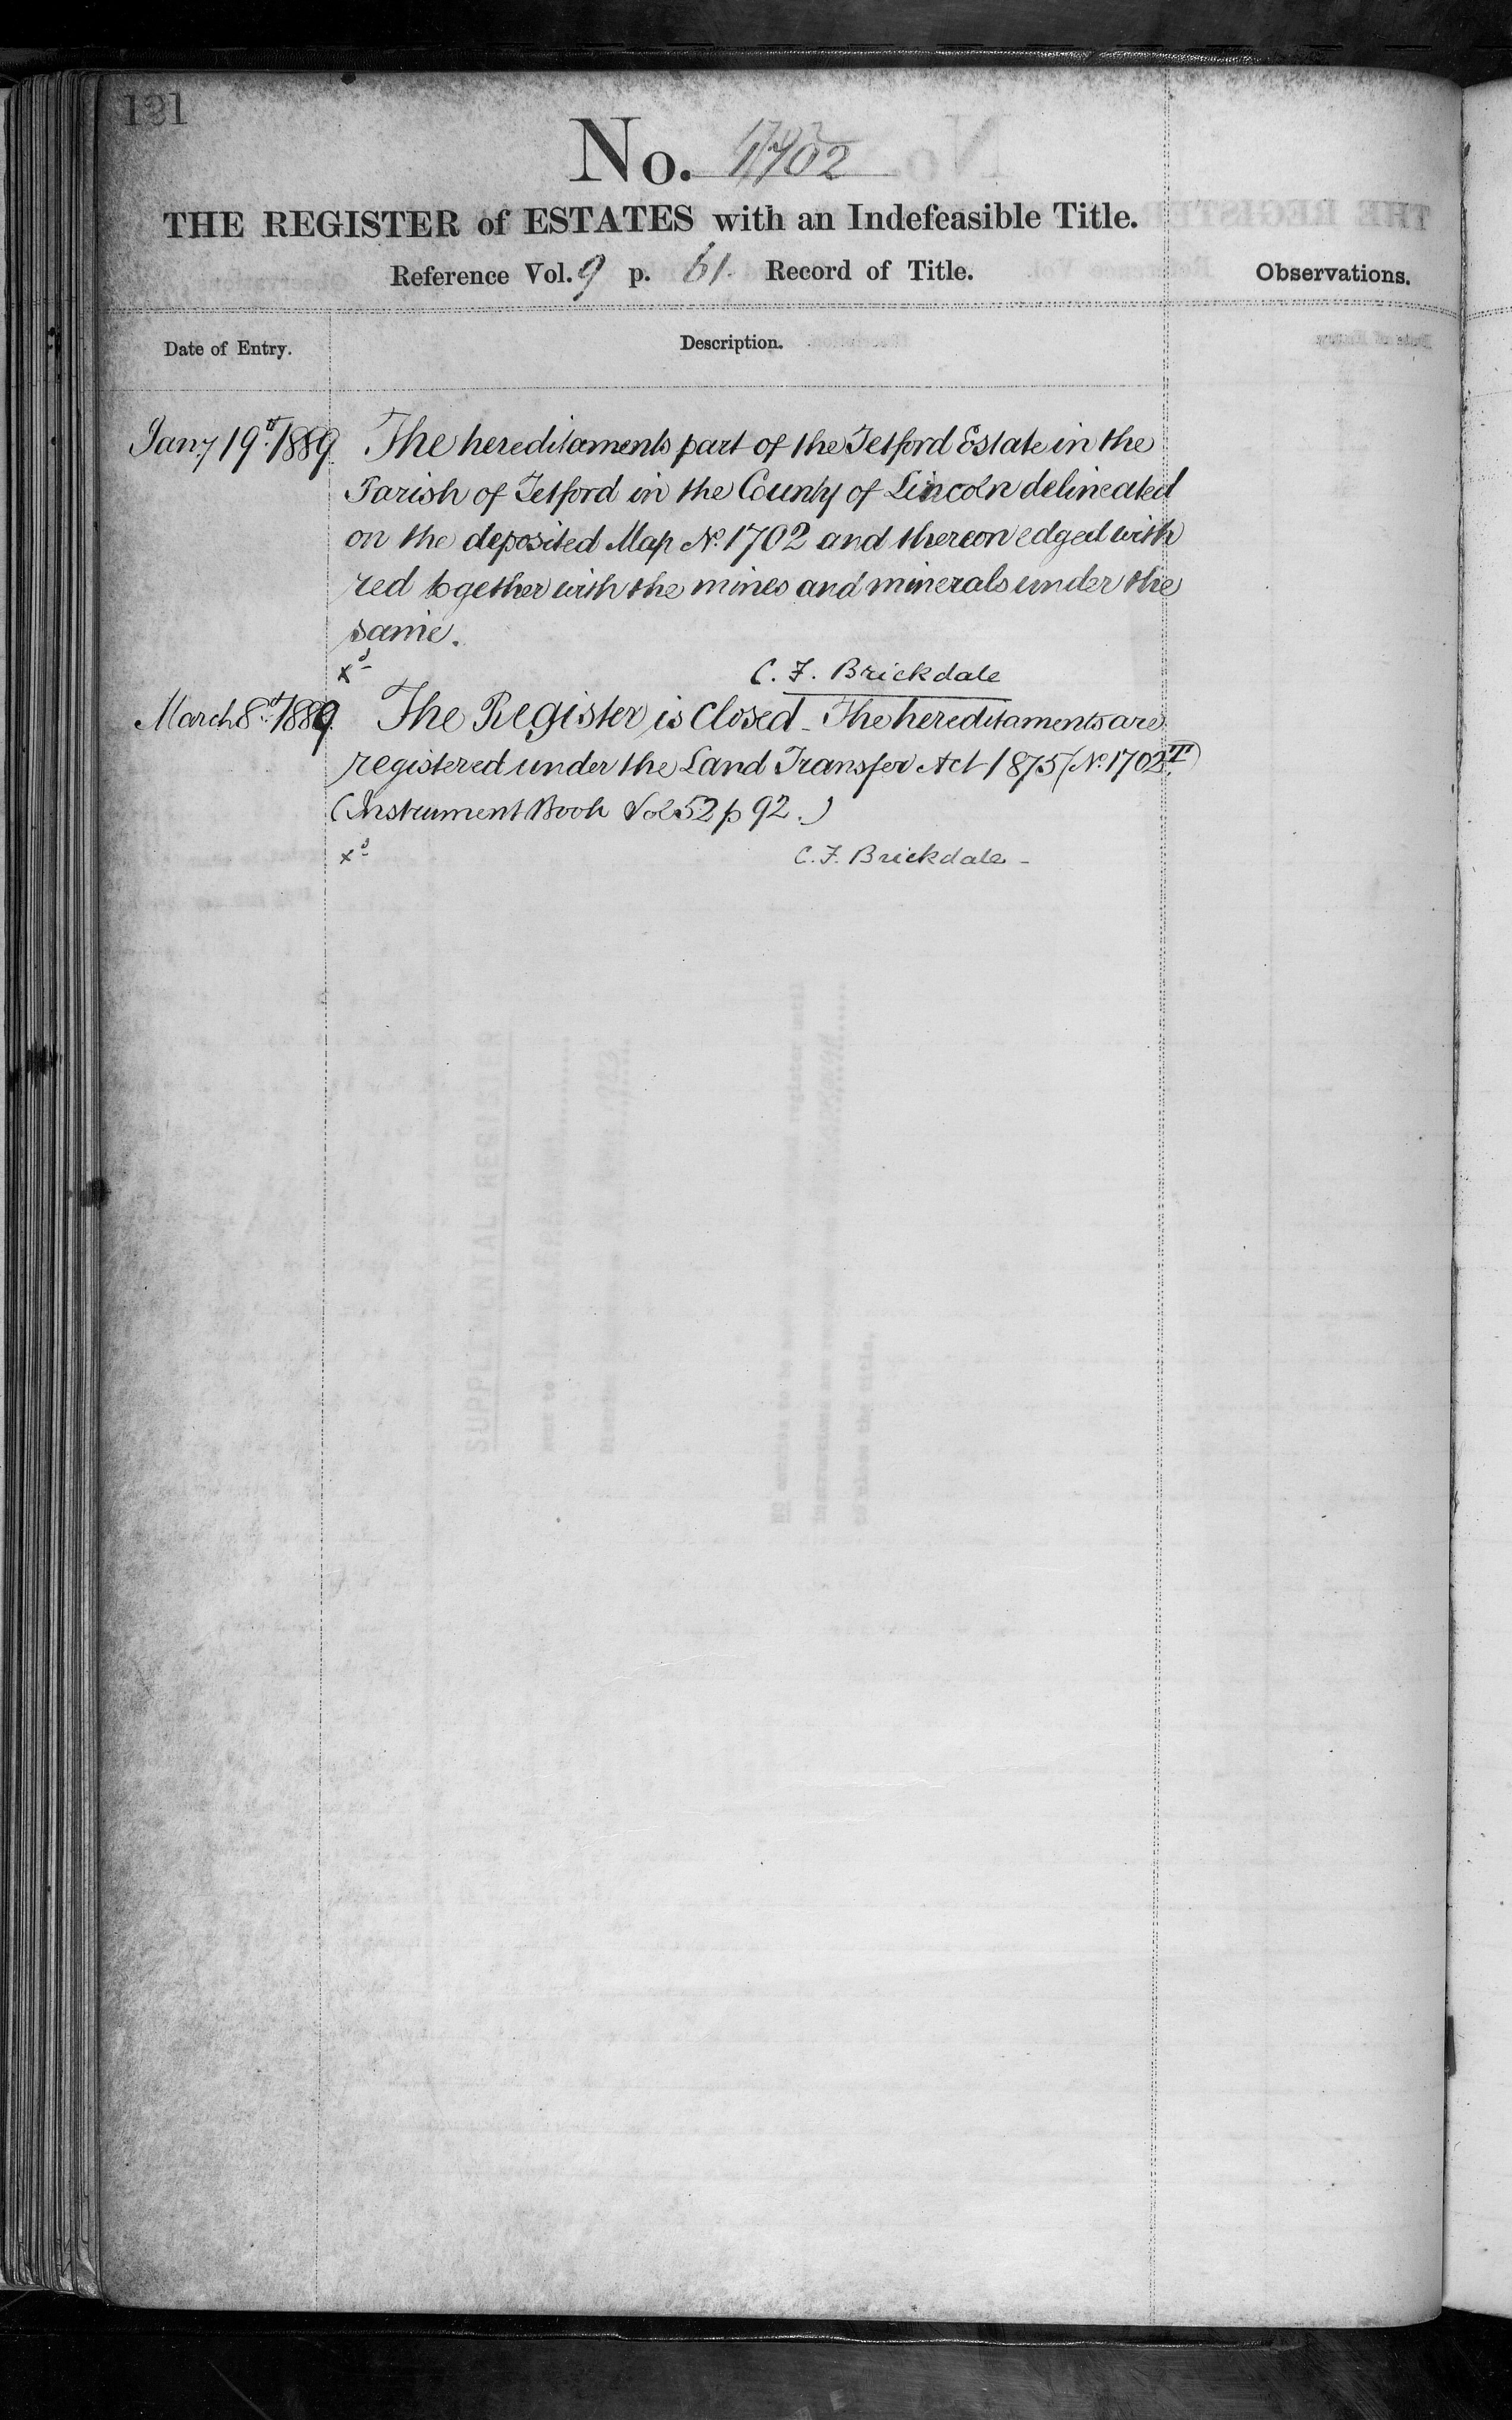 121
No. 1702
THE REGISTER of ESTATES with an Indefeasible Title.
Reference Vol. 9 p. 61. Record of Title.
Observations.
Date of Entry.
Description.
Jany 19th 1889. The hereditaments part of the Tetford Estate in the
Parish of Tetford in the County of Lincoln delineated
on the deposited Map No. 1702 and thereon edged with
red together with the mines and minerals under the
same.
xd C. F. Brickdale
March 8th 1889. The Register is Closed - The hereditaments are
registered under the Land Transfer Act 1875 (No. 1702T)
(Instrument Book Vol 52 p 92.)
xd C. F. Brickdale -